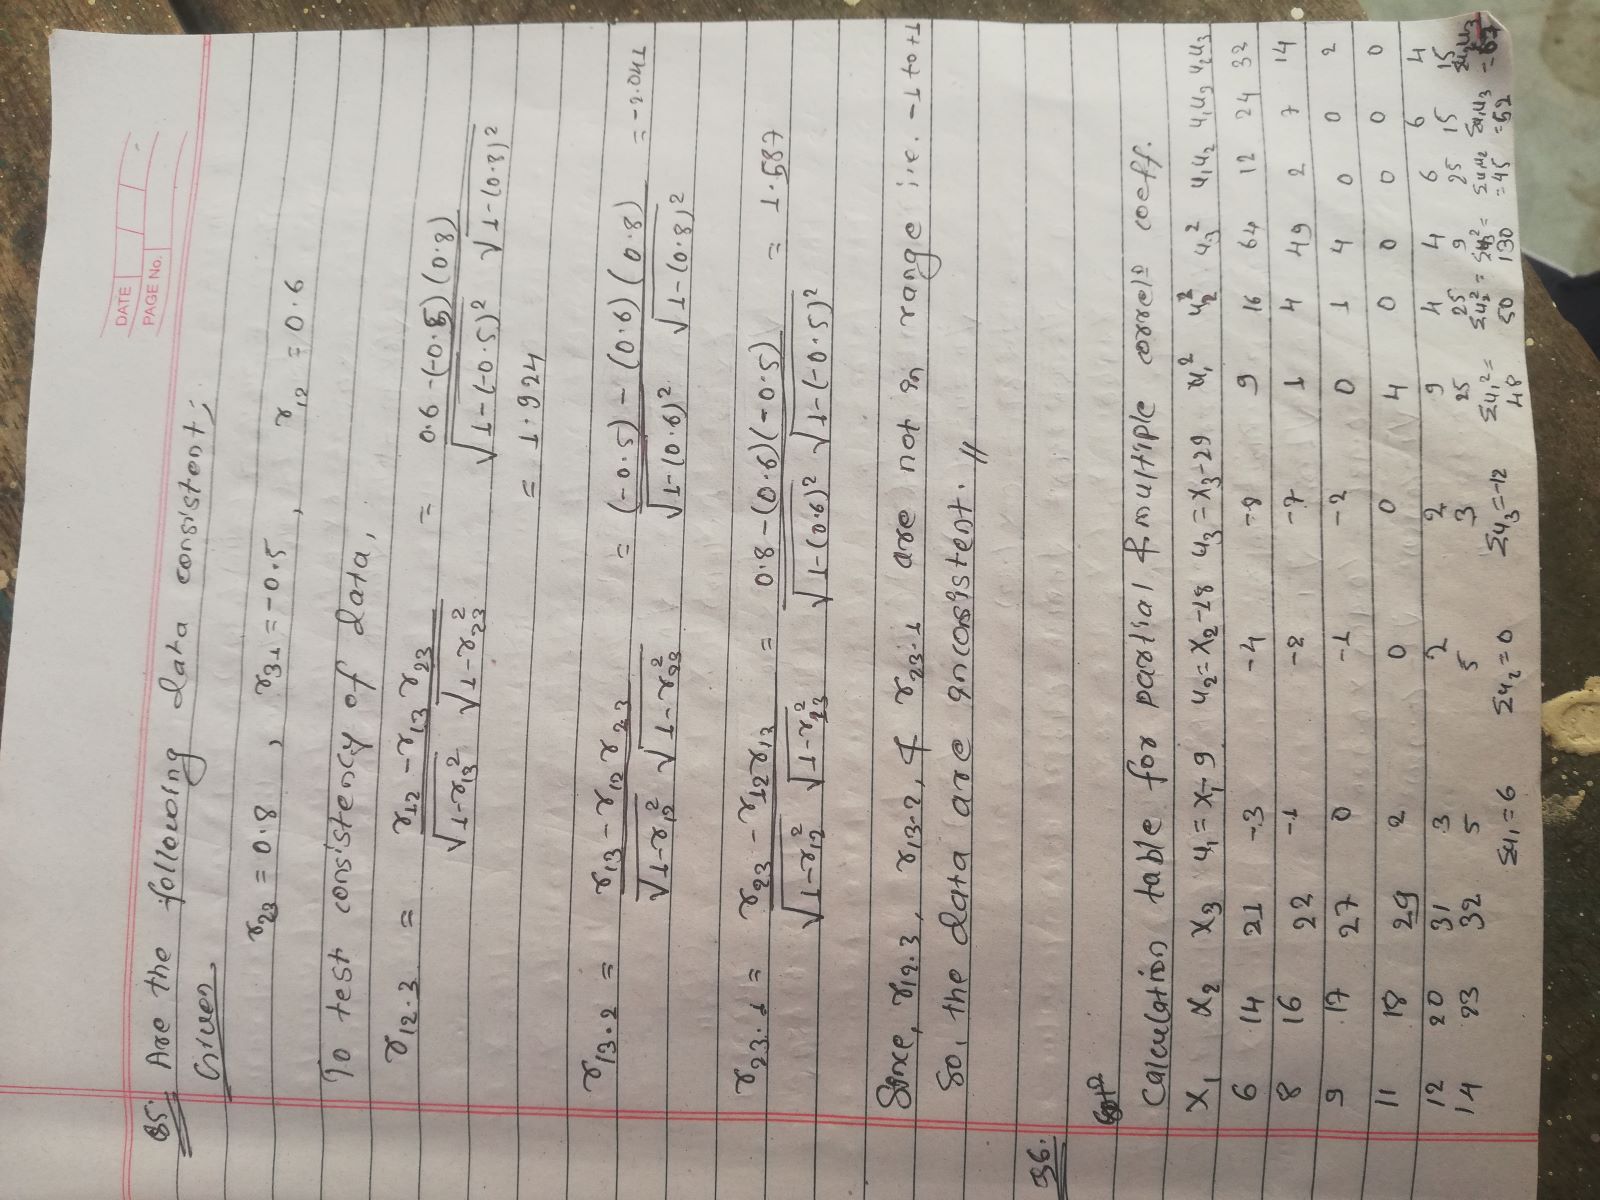 DATE
PAGE No.
Q5. Are the following data consistent;
Given,
r₂₃ = 0.8 , r₃₁ = -0.5 , r₁₂ = 0.6
To test consistency of data,
r₁₂.₃ = (r₁₂ - r₁₃ r₂₃) / (√(1-r₁₃²) √(1-r₂₃²)) = (0.6 -(-0.5)(0.8)) / (√(1-(-0.5)²) √(1-(0.8)²))
= 1.924
r₁₃.₂ = (r₁₃ - r₁₂ r₂₃) / (√(1-r₁₂²) √(1-r₂₃²)) = ((-0.5) - (0.6)(0.8)) / (√(1-(0.6)²) √(1-(0.8)²)) = -2.041
r₂₃.₁ = (r₂₃ - r₁₂ r₁₃) / (√(1-r₁₂²) √(1-r₁₃²)) = (0.8-(0.6)(-0.5)) / (√(1-(0.6)²) √(1-(-0.5)²)) = 1.587
Since, r₁₂.₃, r₁₃.₂, & r₂₃.₁ are not in range i.e. -1 to +1
So, the data are inconsistent. //
36.
Solⁿ
Calculation table for partial & multiple correlⁿ coeff.
X₁ X₂ X₃ u₁ = X₁-9 u₂ = X₂-18 u₃ = X₃-29 u₁² u₂² u₃² u₁u₂ u₁u₃ u₂u₃
6 14 21 -3 -4 -8 9 16 64 12 24 32
8 16 22 -1 -2 -7 1 4 49 2 7 14
9 17 27 0 -1 -2 0 1 4 0 0 2
11 18 29 2 0 0 4 0 0 0 0 0
12 20 31 3 2 2 9 4 4 6 6 4
14 23 32 5 5 3 25 25 9 25 15 15
Σu₁ = 6 Σu₂ = 0 Σu₃ = -12 Σu₁² = 48 Σu₂² = 50 Σu₃² = 130 Σu₁u₂ = 45 Σu₁u₃ = 52 Σu₂u₃ = 67